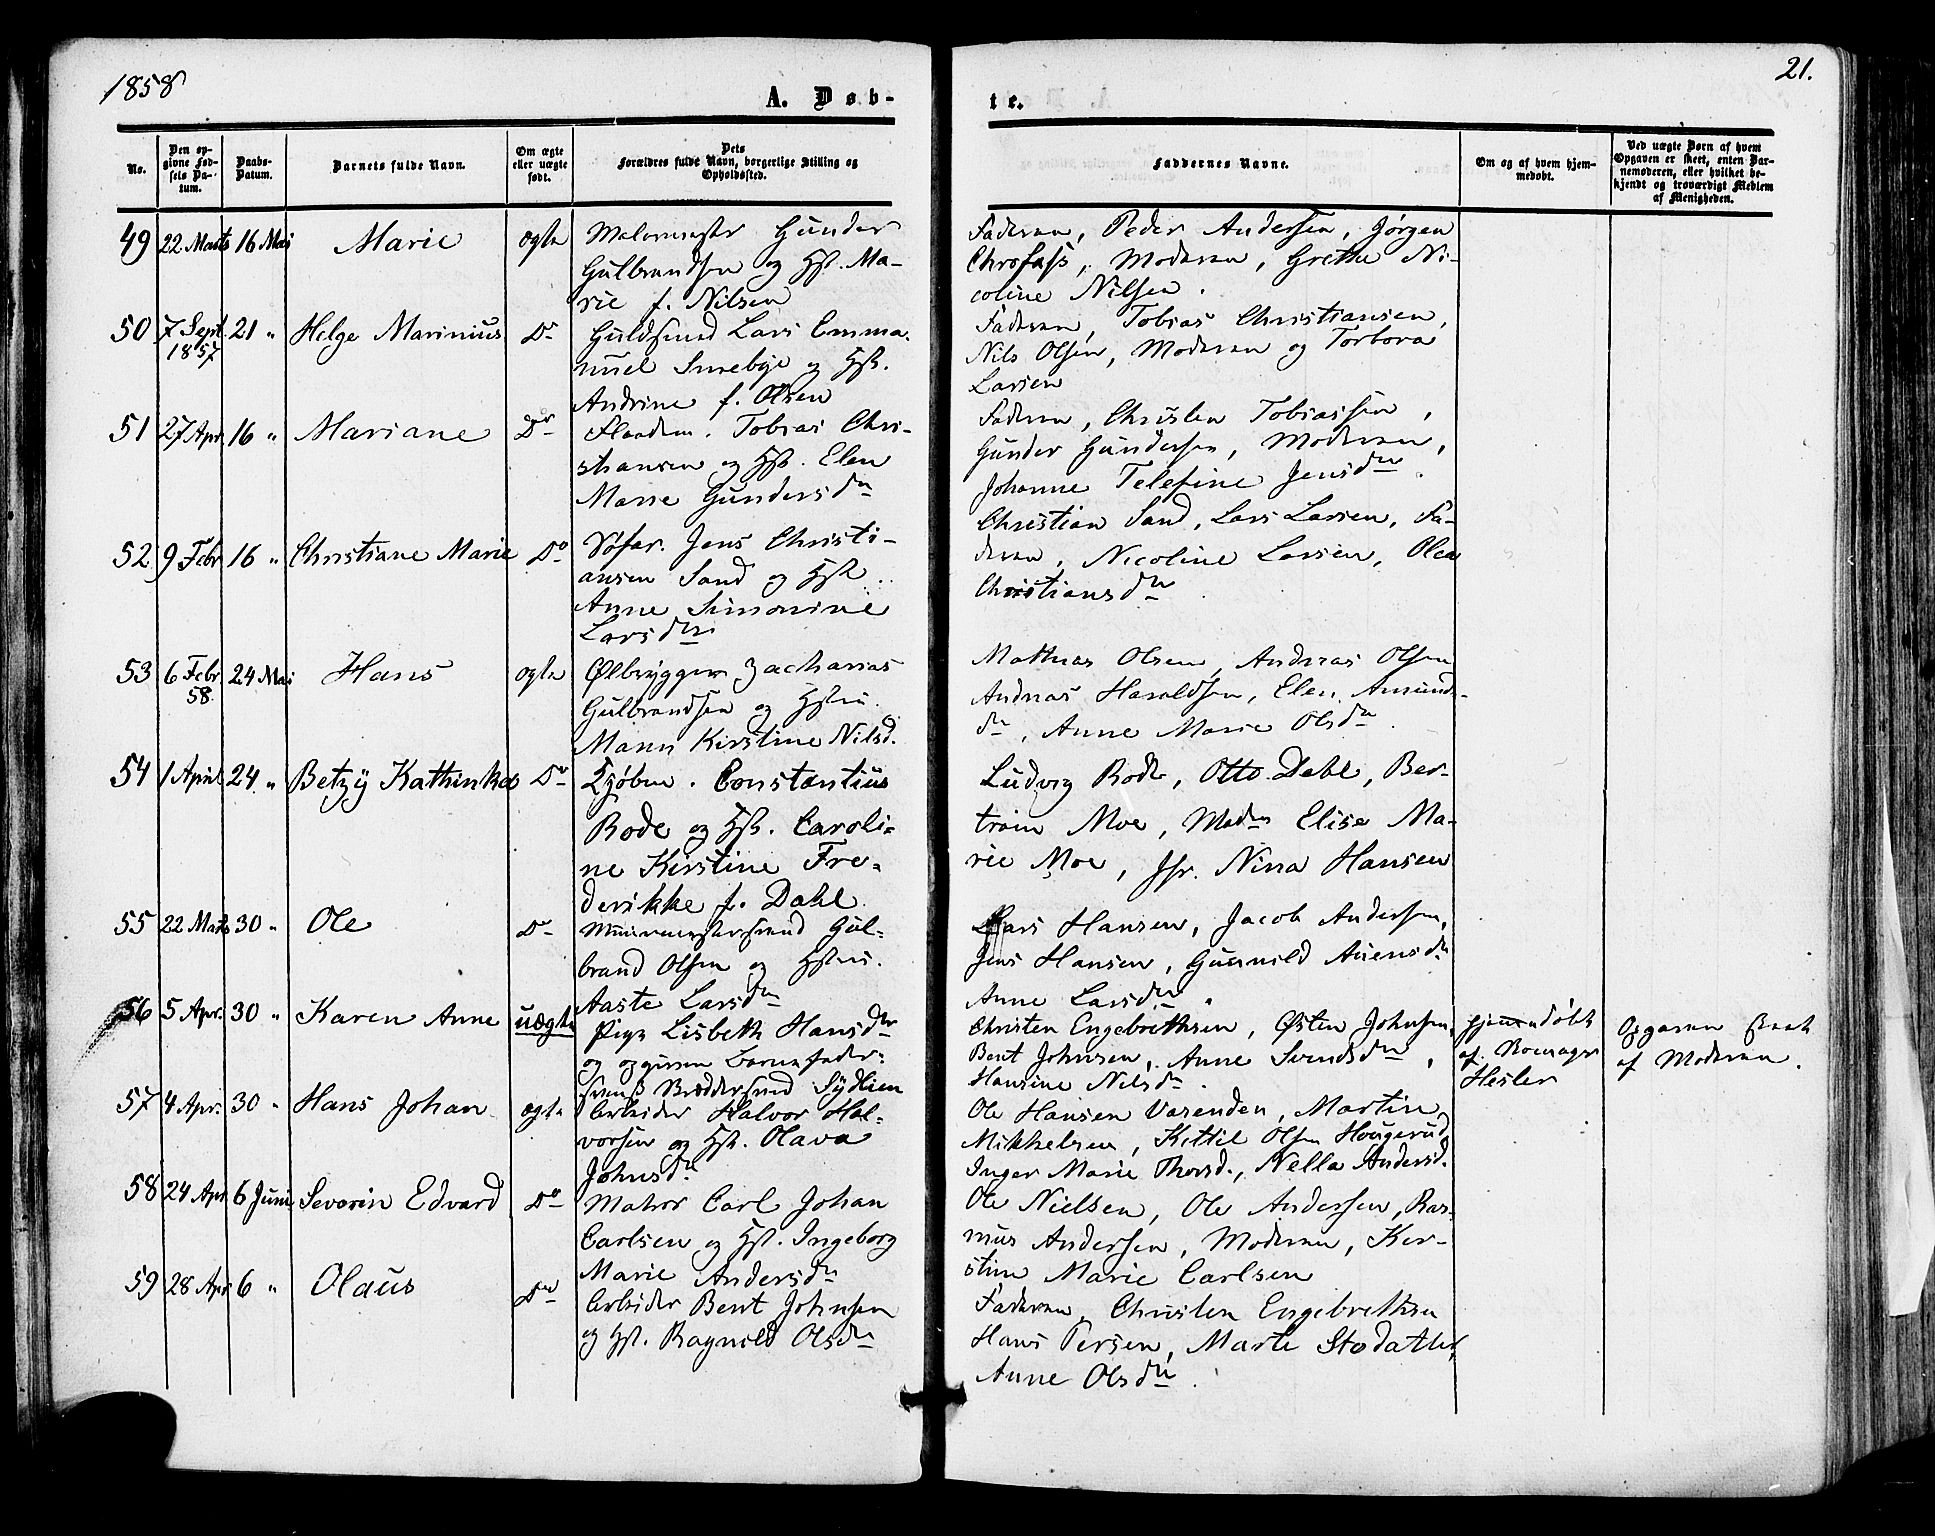 1858
21.
A. Døb-
te.
No.
Den op-
givne Fød-
sels Da-
tum.
Daabs-
Datum.
Barnets fulde Navn.
Om ægte
eller uægte
født.
Dets
Forældres fulde Navn, borgerlige Stilling og
Opholdssted.
Faddernes Navne.
Om og af hvem hjem-
medøbt.
Ved uægte Børn af hvem
Opgaven er skeet, enten Bar-
nemoderen, eller hvilket be-
kjendt og troværdigt Medlem
af Menigheden.
49 22 Marts 16 Mai Marie ægte Malermester Gunder
Gulbrandsen og Hst. Ma-
rie f. Nilsen
Faderen, Peder Andersen, Jørgen
Moderen, Grethe Ni-
coline Nilsen.
50 7 Sept. 21 " Helge Marinius Do Guldsmed Lars Emma-
1857
nuel og Hst.
Andrine f. Olsen
Faderen, Tobias Christiansen,
Nils Olsen, Moderen og Torbora
Larsen
51 27 Apr. 16 " Mariane Do Tobias Chri-
stiansen og Hst. Elen
Marie Gundersdtr
Faderen, Christen Tobiassen,
Gunder Gundersen, Moderen,
Johanne Telefine Jensdtr.
52 9 Febr 16 " Christiane Marie Do Søfar. Jens Christi-
ansen Sand og Hst.
Anne Simonine
Larsdtr.
Christian Sand, Lars Larsen, Fa-
deren, Nicoline Larsen, Olea
Christiansdtr
53 6 Febr 24 Mai Hans ægte Ølbrygger Zacharias
58.
Gulbrandsen og Hstru.
Maren Kirstine Nilsd.
Mathias Olsen, Andreas Olsen
Andreas Haraldsen, Elen Amunds-
dtr, Anne Marie Olsdtr.
54 1 April 24 " Betzÿ Kathinka Do Kjøbm. Constantius
Rode og Hst. Caroli-
ne Kirstine Fre-
derikke f. Dahl.
Ludvig Rode, Otto Dahl, Ber-
tram Moe, Mad. Elise Ma-
rie Moe, Jfr. Nina Hansen
55 22 Marts 30 " Ole Do Muurmestersvend Gul-
brand Olsen og Hstru.
Aaste Larsdtr
Lars Hansen, Jacob Andersen,
Jens Hansen, Gunnild Aaensdtr
Anne Larsdtr.
56 5 Apr. 30 " Karen Anne uægte Pige Lisbeth Hansdtr
og opgiven Barnefader:
Sÿdlien
Christen Engebrethsen, Østen Johnsen,
Bent Johnsen, Anne Svendsdtr,
Hansine Nilsdtr.
Hjemmedøbt
af
Hesler
Opgaven skeet
af Moderen.
57 4 Apr. 30 " Hans Johan ægte Arbeider Halvor Hal-
vorsen og Hst. Olava
Johnsdtr.
Ole Hansen Varenden, Martin
Mikkelsen, Kittil Olsen Hougerud,
Inger Marie Thorsd., Nella Andersd.
58 24 Apr 6 Juni Severin Edvard Do Matros Carl Johan
Carlsen og Hst. Ingeborg
Marie Andersdtr
Ole Nielsen, Ole Andersen, Ras-
mus Andersen, Moderen, Ker-
stine Marie Carlsen
59 28 Apr 6 " Olaus Do Arbeider Bent Johnsen
og Hst. Ragnild Olsdtr
Faderen, Christen Engebrethsen
Hans Persen, Marte Stodatter,
Anne Olsdtr.